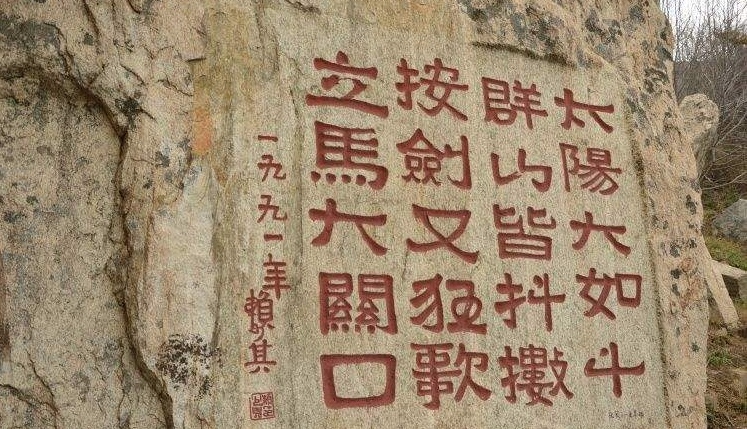 太陽大如斗
群山皆抖擻
按劍又狂歌
立馬大關口
一九九一年賴少其